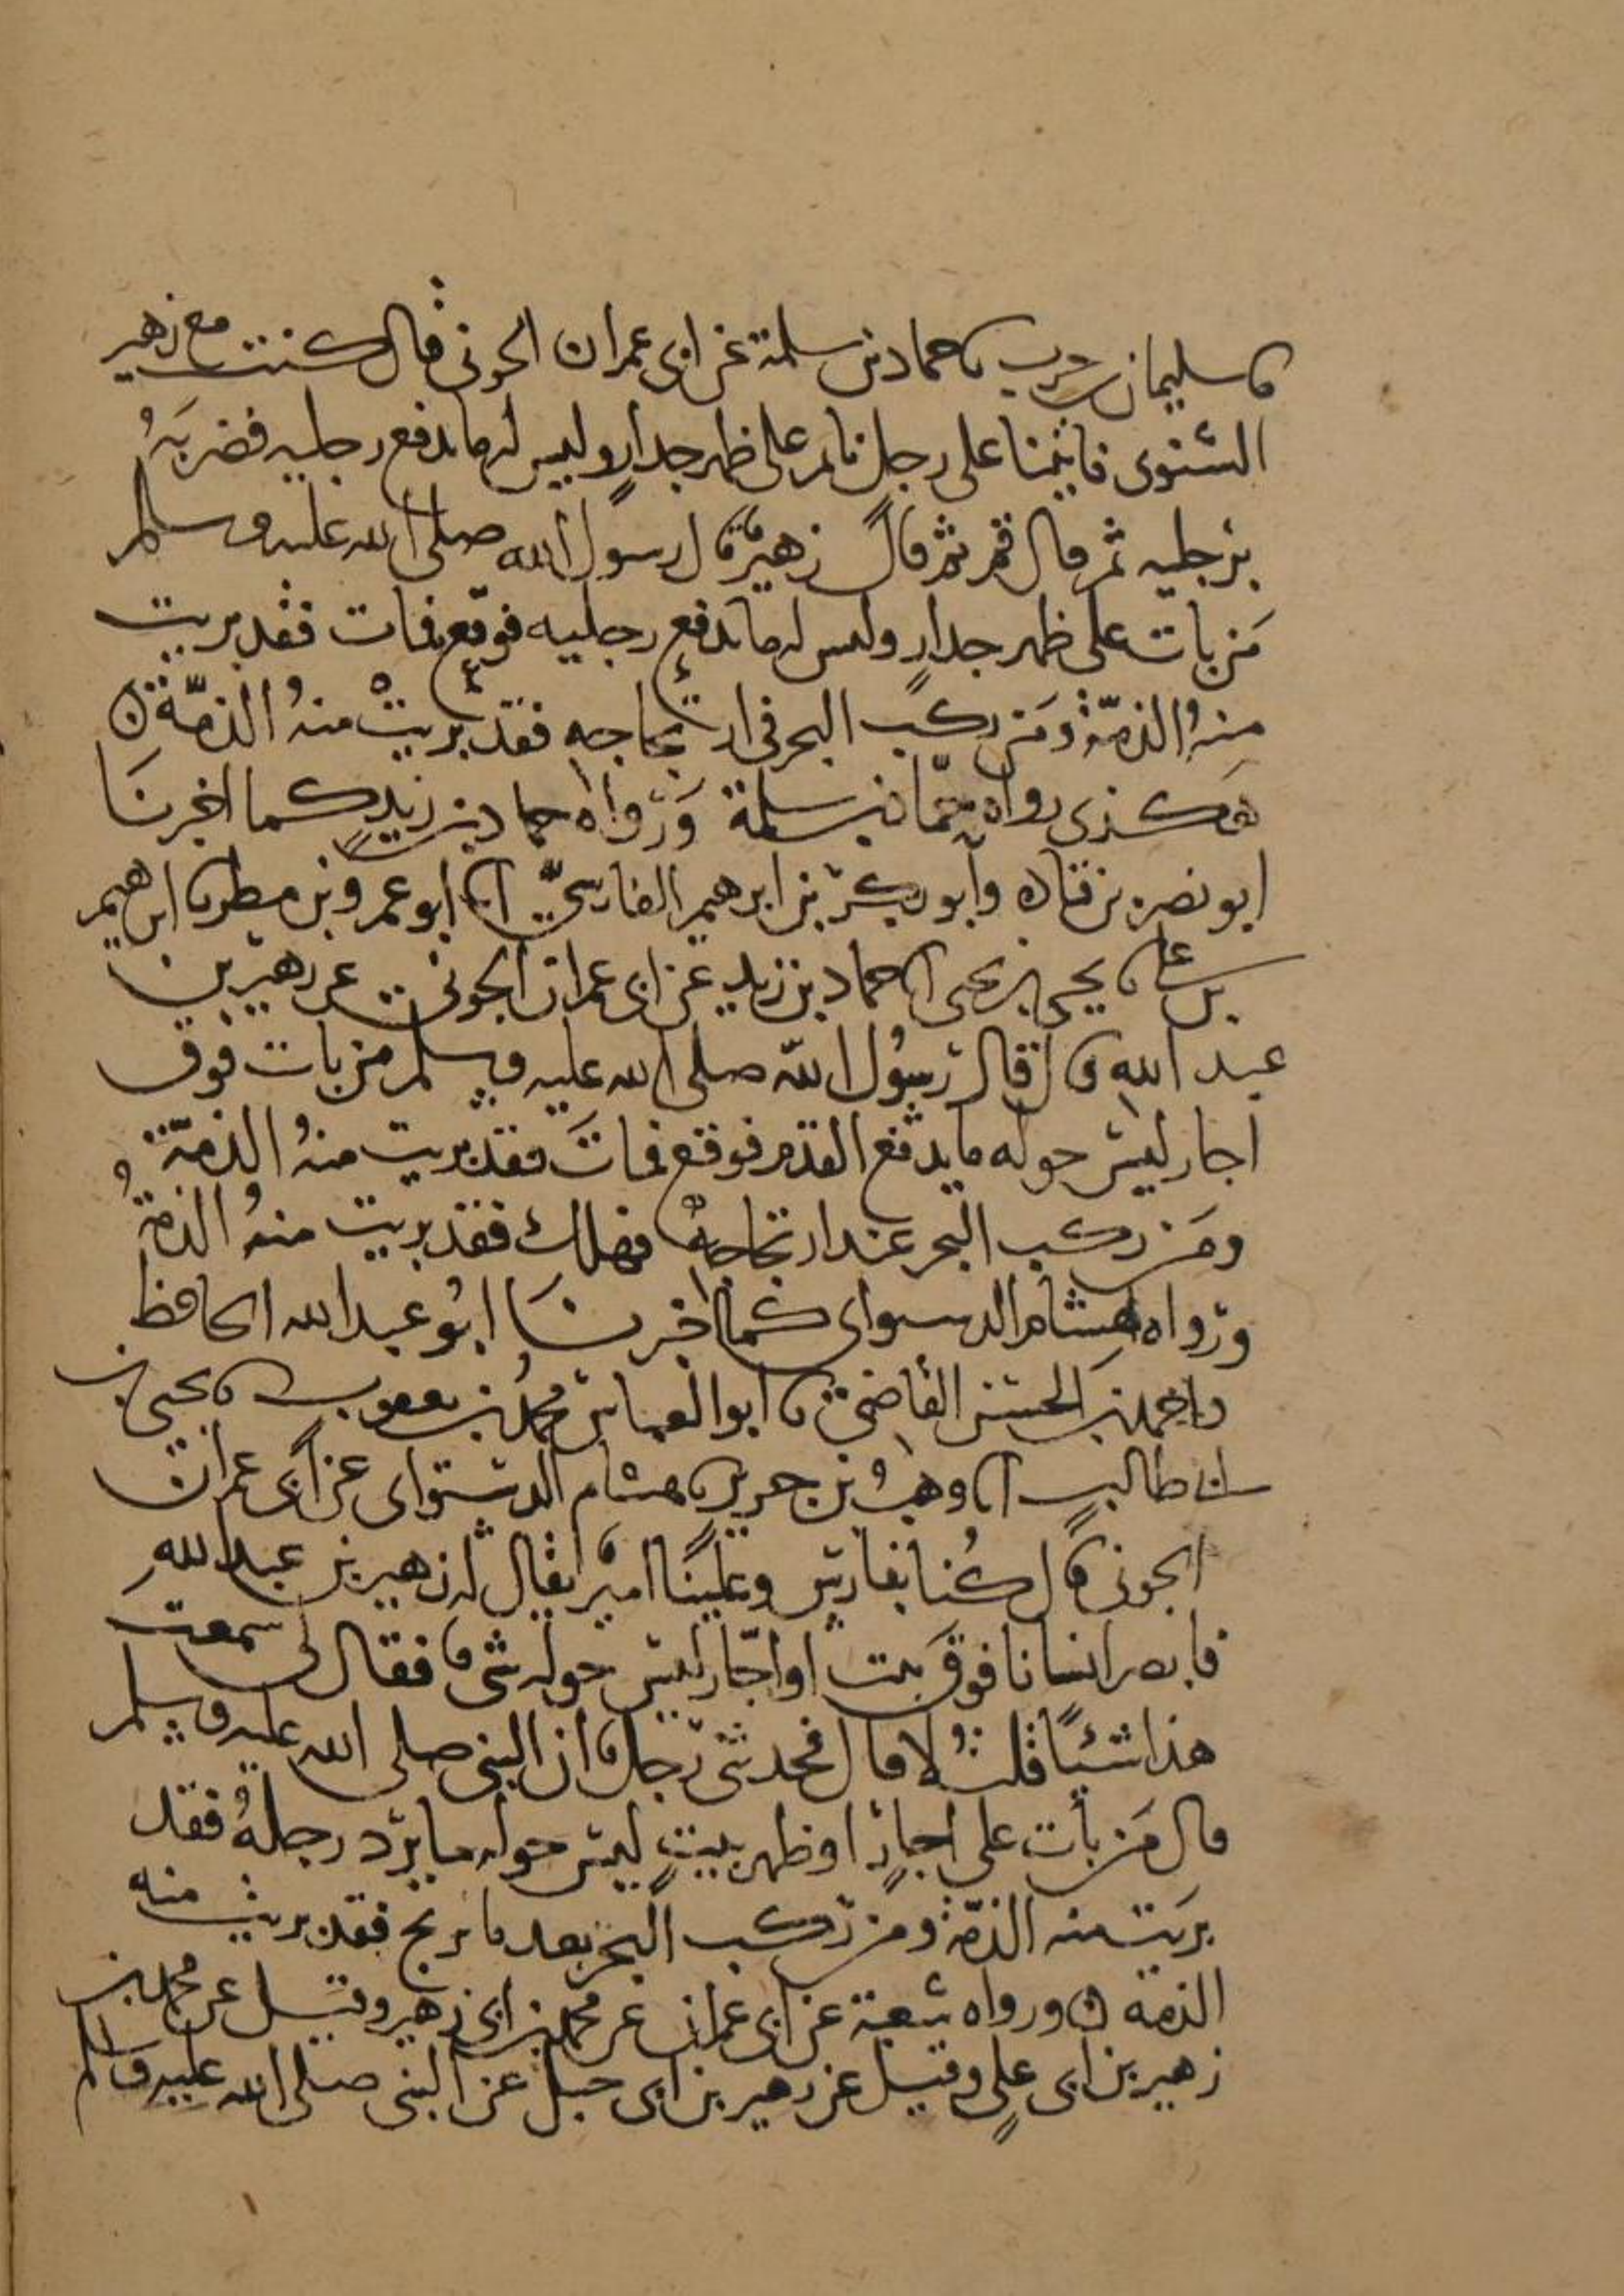 نا سليمان بن حرب نا حماد بن سلمة عن ابى عمران الجونى قال كنت مع زهير
الشنوى فاتينا على رجل نائم على ظهر جدار وليس له ما يدفع رجليه فضربه
برجليه ثم قال قم ثم قال زهير قال رسول الله صلى الله عليه وسلم
من بات على ظهر جدار وليس له ما يدفع رجليه فوقع فمات فقد بريت
منه الذمة ومن ركب البحر فى ارتجاجه فقد بريت منه الذمة
هكذى رواه حماد بن سلمة ورواه حماد بن زيد كما اخبرنا
ابو نصر بن قتاده وابو بكر بن ابرهيم الفارسى انا ابو عمرو بن مطر نا ابرهيم
بن على نا يحيى بن يحيى انا حماد بن زيد عن ابى عمران الجونى عن زهير بن
عبد الله قال قال رسول الله صلى الله عليه وسلم من بات فوق
اجار ليس حوله ما يدفع القدم فوقع فمات فقد بريت منه الذمة
ومن ركب البحر عند ارتجاجه فهلك فقد بريت منه الذمة
ورواه هشام الدستواى كما اخبرنا ابو عبد الله الحافظ
واحمد بن الحسن القاضى نا ابو العباس محمد بن يعقوب نا يحيى بن
ابى طالب انا وهب بن جرير نا هشام الدستواى عن ابى عمران
الجونى قال كنا بفارس وعلينا امير يقال له زهير بن عبد الله
فابصر انسانا فوق بيت او اجار ليس حوله شى فقال لى سمعت
هذا شيئا قلت لا قال فحدثنى رجل ان النبى صلى الله عليه وسلم
قال من بات على اجار او ظهر بيت ليس حوله ما يرد رجله فقد
بريت منه الذمة ومن ركب البحر بعد ما يرتج فقد بريت منه
الذمة ورواه شعبة عن ابى عمران عن محمد بن ابى زهير وقيل عن محمد بن
زهير بن ابى على وقيل عن زهير بن ابى جبل عن النبى صلى الله عليه وسلم